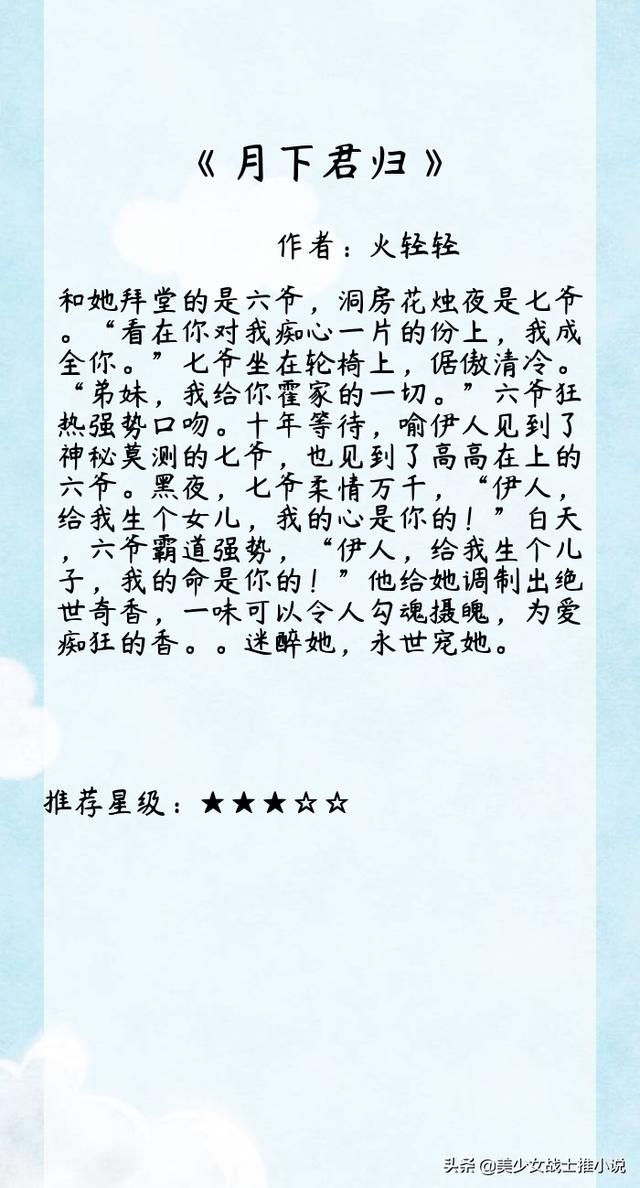 《月下君归》
作者：火轻轻
和她拜堂的是六爷，洞房花烛夜是七爷
。“看在你对我痴心一片的份上，我成
全你。”七爷坐在轮椅上，倨傲清冷。
“弟妹，我给你霍家的一切。”六爷狂
热强势口吻。十年等待，喻伊人见到了
神秘莫测的七爷，也见到了高高在上的
六爷。黑夜，七爷柔情万千，“伊人，
给我生个女儿，我的心是你的！”白天
，六爷霸道强势，“伊人，给我生个儿
子，我的命是你的！”他给她调制出绝
世奇香，一味可以令人勾魂摄魄，为爱
痴狂的香。。迷醉她，永世宠她。
推荐星级：★★★☆☆
头条 @美少女战士推小说